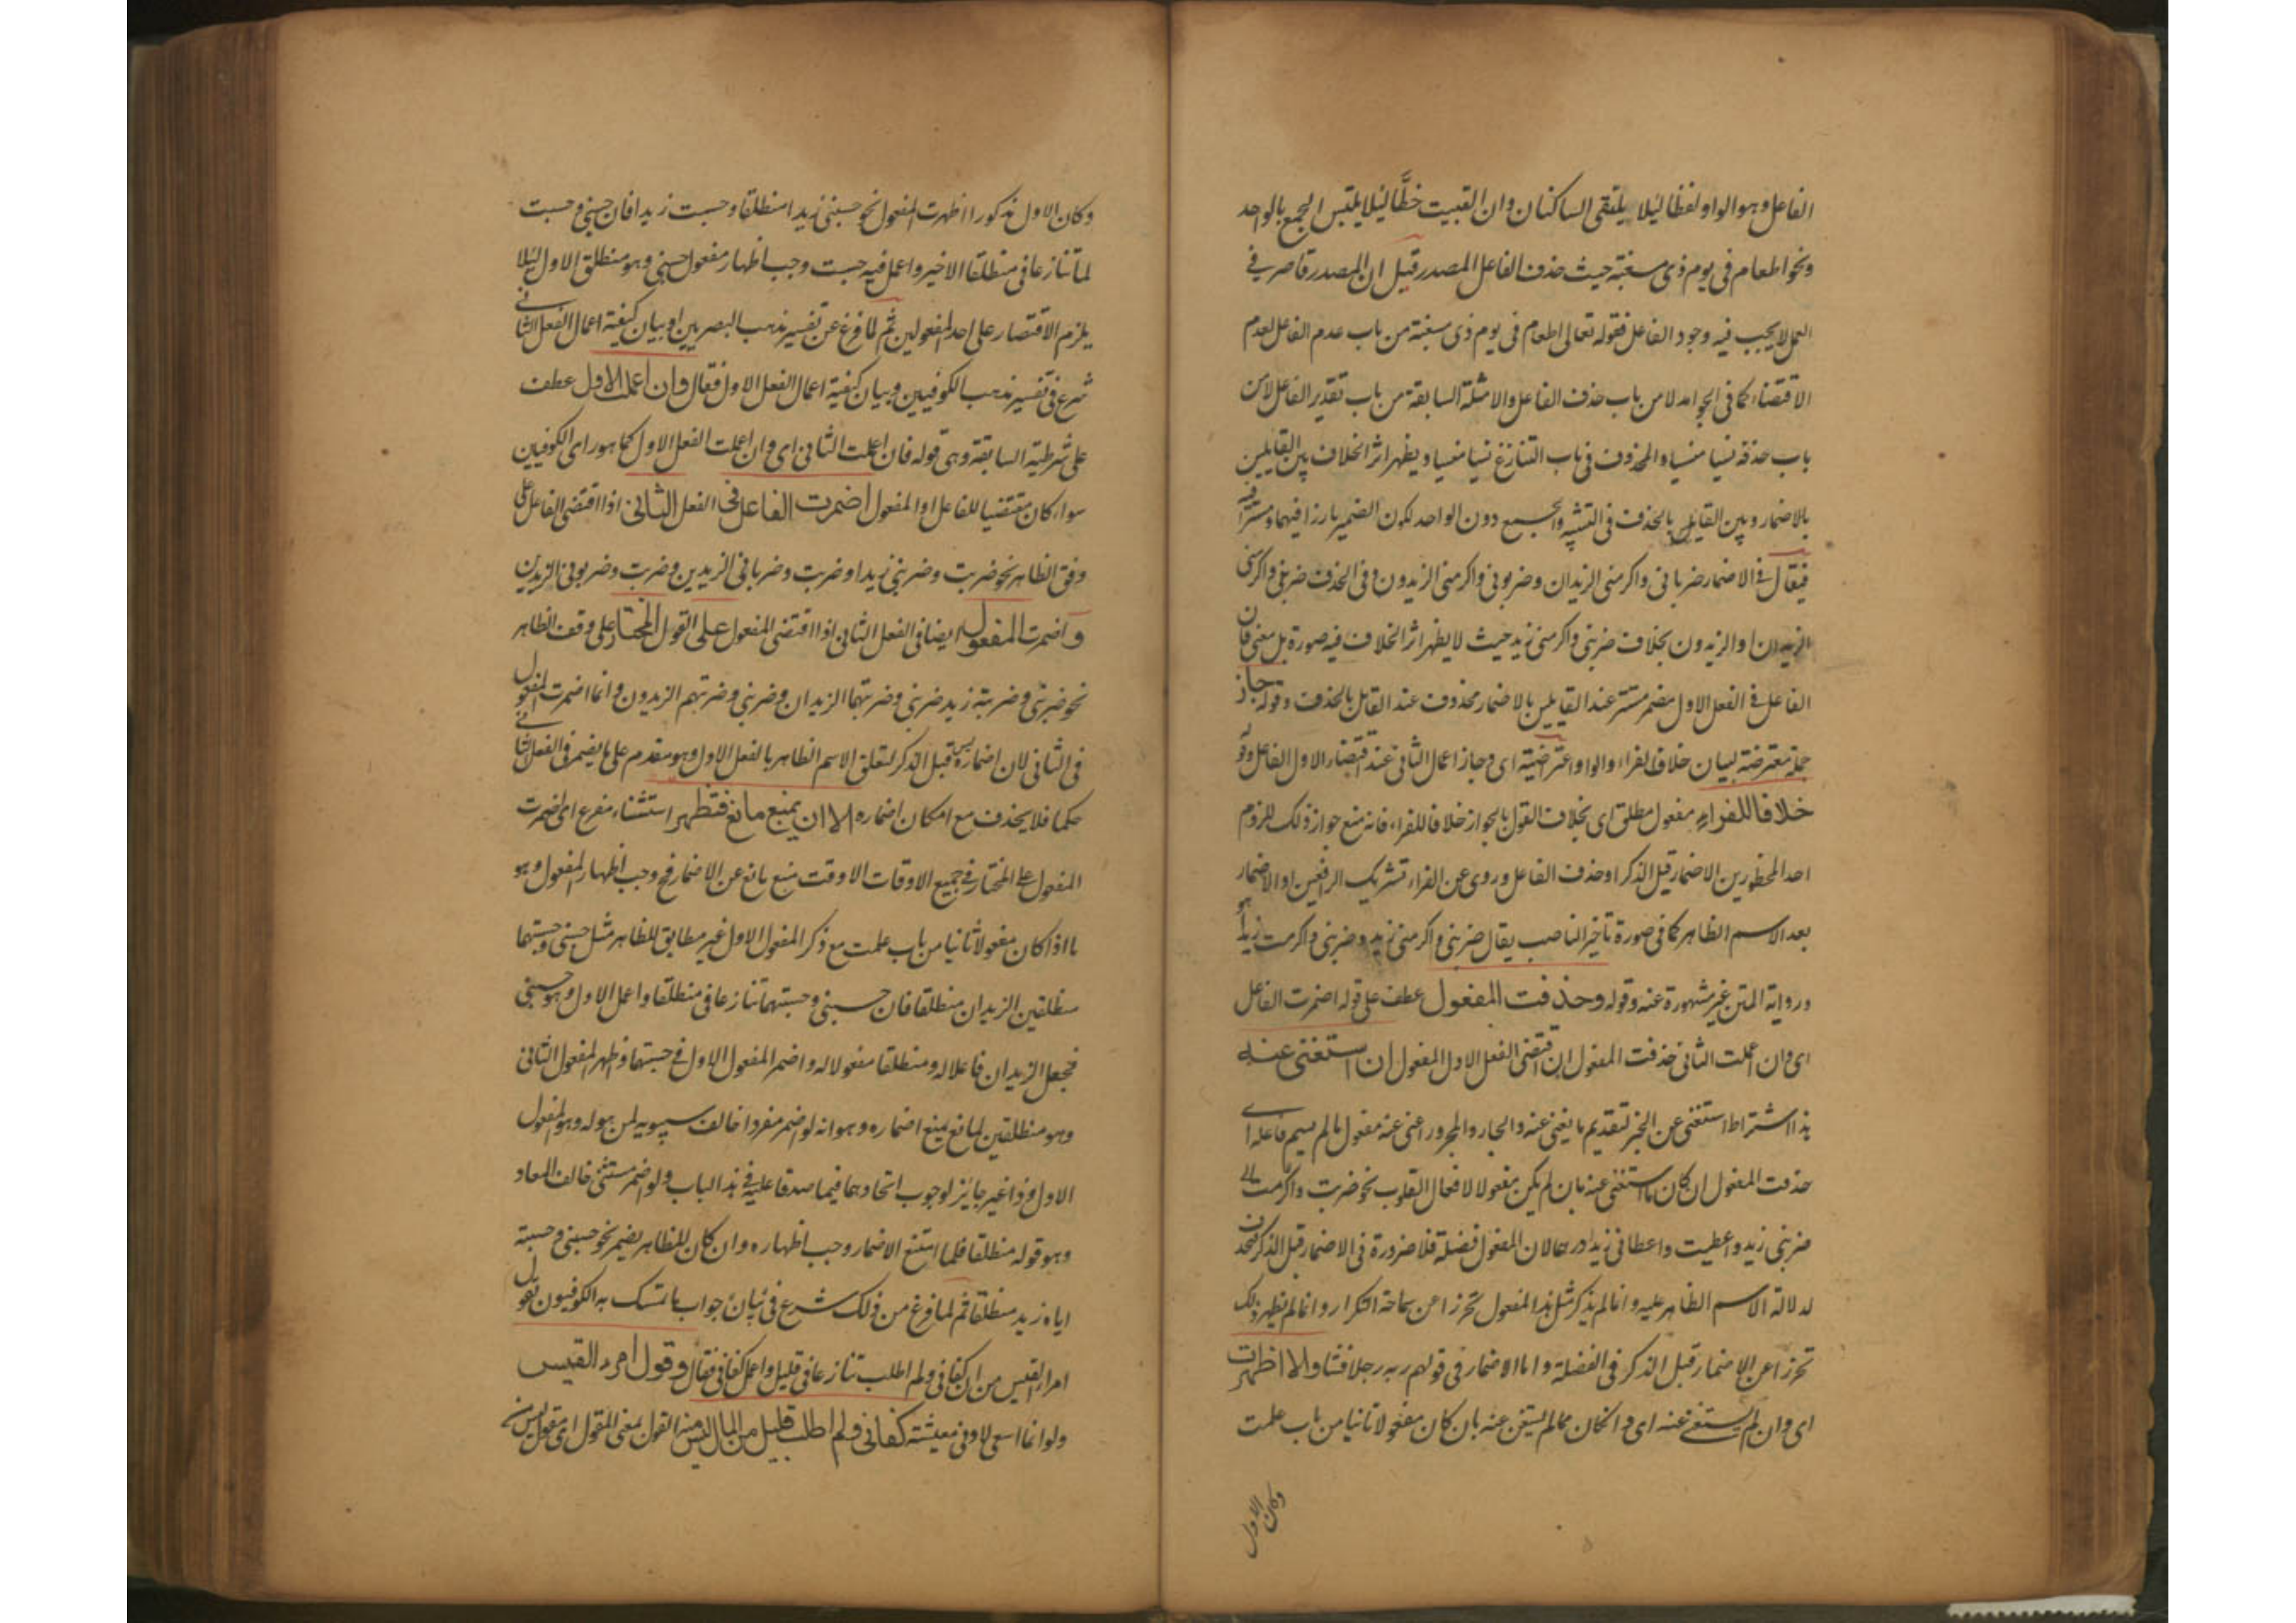 الفاعل وهو الواو لفظا ليلا يلتقى الساكنان وان القيت خطًّا ليلا يلتبس الجمع بالواحد
ونحو اطعام فى يوم ذى مسغبة حيث حذف الفاعل المصدر قيل ان المصدر قاصر فى
العمل لا يجب فيه وجود الفاعل فقوله تعالى اطعام فى يوم ذى مسغبة من باب عدم الفاعل لعدم
الاقتضاء كما فى الجوامد لا من باب حذف الفاعل والامثلة السابقة من باب تقدير الفاعل لا من
باب حذفه نسيا منسيا والمحذوف فى باب التنازع نسيا منسيا ويظهر اثر الخلاف بين القايلين
بالاضمار وبين القايل بالحذف فى التثنية والجمع دون الواحد لكون الضمير بارزا فيهما ومستترا فيه
فيقال فى الاضمار ضربانى واكرمنى الزيدان وضربونى واكرمنى الزيدون وفى الحذف ضربنى واكرمنى
الزيدان او الزيدون بخلاف ضربنى واكرمنى زيد حيث لا يظهر اثر الخلاف فيه صورة بل معنى فان
الفاعل فى الفعل الاول مضمر مستتر عند القايلين بالاضمار محذوف عند القايل بالحذف وقوله جاز
جملة معترضة لبيان خلاف الفراء والواو اعتراضية اى وجاز اعمال الثانى عند اقتضاء الاول الفاعل وقوله
خلافا للفراء مفعول مطلق اى بخلاف القول بالجواز خلافا للفراء فانه منع جواز ذلك للزوم
احد المحظورين الاضمار قبل الذكر او حذف الفاعل وروى عن الفراء تشريك الرافعين او الاضمار
بعد الاسم الظاهر كما فى صورة تأخير الناصب يقال ضربنى واكرمنى زيد هو وضربنى واكرمت زيدا هو
ورواية المتن غير مشهورة عنه وقوله وحذفت المفعول عطف على قوله اضمرت الفاعل
اى وان اعملت الثانى حذفت المفعول ان اقتضى الفعل الاول المفعول ان استغنى عنه
هذا اشتراط استغنى عن الجزاء لتقديم ما يغنى عنه والجار والمجرور اعنى عنه مفعول ما لم يسم فاعله اى
حذفت المفعول ان كان مما استغنى عنه بان لم يكن مفعولا لافعال القلوب نحو ضربت واكرمنى
ضربنى زيد واعطيت واعطانى زيد درهما لان المفعول فضلة فلا ضرورة فى الاضمار قبل الذكر فيحذف
لدلالة الاسم الظاهر عليه وانما لم يذكر مثل هذا المفعول تحرزا عن سماجة التكرار وانما لم يظهر ذلك
تحرزا عن الاضمار قبل الذكر فى الفضلة واما الاضمار فى قولهم ربه رجلا فشاذ والا اظهرت
اى وان لم يستغن عنه اى وان كان مما لم يستغن عنه بان كان مفعولا ثانيا من باب علمت
وكان الاول
وكان الاول مذكورا اظهرت المفعول نحو حسبنى زيد منطلقا وحسبت زيدا فان حسبنى وحسبت
لما تنازعا فى منطلقا الاخير واعمل فيه حسبت وجب اظهار مفعول حسبنى وهو منطلق الاول ليلا
يلزم الاقتصار على احد المفعولين ثم لما فرغ عن تفسير مذهب البصريين او بيان كيفية اعمال الفعل الثانى
شرع فى تفسير مذهب الكوفيين وبيان كيفية اعمال الفعل الاول فقال وان اعملت الاول عطف
على شرطية السابقة وهى قوله فان اعملت الثانى اى وان اعملت الفعل الاول كما هو راى الكوفيين
سواء كان مقتضيا للفاعل او المفعول اضمرت الفاعل فى الفعل الثانى اذا اقتضى الفاعل على
وفق الظاهر نحو ضربت وضربنى زيدا وضربت وضربانى الزيدين وضربت وضربونى الزيدين
واضمرت المفعول ايضا فى الفعل الثانى اذا اقتضى المفعول على القول المختار على وفق الظاهر
نحو ضربنى وضربته زيد ضربنى وضربتهما الزيدان وضربنى وضربتهم الزيدون وانما اضمرت المفعول
فى الثانى لان اضماره ليس قبل الذكر لتعلق الاسم الظاهر بالفعل الاول وهو مقدم على ما يضمر فى الفعل الثانى
حكما فلا يحذف مع امكان اضماره الا ان يمنع مانع فتظهر استثناء مفرغ اى اضمرت
المفعول على المختار فى جميع الاوقات الا وقت منع مانع عن الاضمار فح وجب اظهار المفعول وهو
ما اذا كان مفعولا ثانيا من باب علمت مع ذكر المفعول الاول غير مطابق للظاهر مثل حسبنى وحسبتهما
منطلقين الزيدان منطلقا فان حسبنى وحسبتهما تنازعا فى منطلقا واعمل الاول وهو حسبنى
فجعل الزيدان فاعلا له ومنطلقا مفعولا له واضمر المفعول الاول فى حسبتهما واظهر المفعول الثانى
وهو منطلقين لمانع يمنع اضماره وهو انه لو اضمر مفردا خالف سيبويه لمن هو له وهو المفعول
الاول وذا غير جايز لوجوب اتحادهما فيما صدقا عليه فى هذا الباب ولو اضمر مستثنى خالف المعاد
وهو قوله منطلقا فلما امتنع الاضمار وجب اظهاره وان كان للظاهر يضمر نحو حسبنى وحسبته
اياه زيد منطلقا ثم لما فرغ من ذلك شرع فى بيان جواب ما تمسك به الكوفيون بقول
امراء القيس من ان كفانى ولم اطلب تنازعا فى قليل واعمل كفانى فقال وقول امرء القيس
ولو انما اسعى لادنى معيشة كفانى ولم اطلب قليل من المال ليس منه القول بمعنى المقول اى مقوله ليس منه